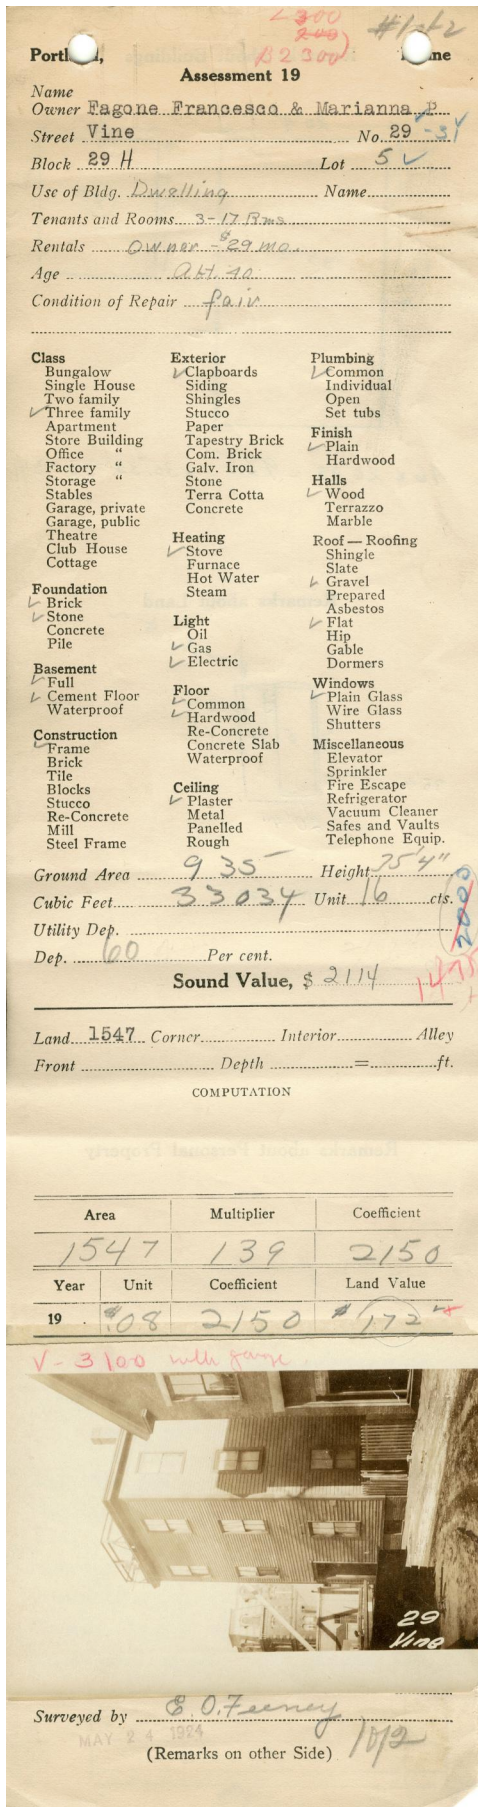 L 300
200
B 2300)
#1 of 2
Portland, Maine
Assessment 19
Name
Owner Fagone Francesco & Marianna P
Street Vine No. 29 -34
Block 29 H Lot 5 ✓
Use of Bldg. Dwelling Name
Tenants and Rooms 3-17 Rms
Rentals Owner - $29 mo.
Age abt 40
Condition of Repair fair
Class
Bungalow
Single House
Two family
✓ Three family
Apartment
Store Building
Office "
Factory "
Storage "
Stables
Garage, private
Garage, public
Theatre
Club House
Cottage
Foundation
✓ Brick
✓ Stone
Concrete
Pile
Basement
✓ Full
✓ Cement Floor
Waterproof
Construction
✓ Frame
Brick
Tile
Blocks
Stucco
Re-Concrete
Mill
Steel Frame
Exterior
✓ Clapboards
Siding
Shingles
Stucco
Paper
Tapestry Brick
Com. Brick
Galv. Iron
Stone
Terra Cotta
Concrete
Heating
✓ Stove
Furnace
Hot Water
Steam
Light
Oil
✓ Gas
✓ Electric
Floor
✓ Common
✓ Hardwood
Re-Concrete
Concrete Slab
Waterproof
Ceiling
✓ Plaster
Metal
Panelled
Rough
Plumbing
✓ Common
Individual
Open
Set tubs
Finish
✓ Plain
Hardwood
Halls
✓ Wood
Terrazzo
Marble
Roof — Roofing
Shingle
Slate
✓ Gravel
Prepared
Asbestos
✓ Flat
Hip
Gable
Dormers
Windows
✓ Plain Glass
Wire Glass
Shutters
Miscellaneous
Elevator
Sprinkler
Fire Escape
Refrigerator
Vacuum Cleaner
Safes and Vaults
Telephone Equip.
Ground Area 935 Height
Cubic Feet 33034 Unit 16 cts.
2000
Utility Dep.
Dep. 60 Per cent.
Sound Value, $ 2114
1475
Land 1547 Corner Interior Alley
Front Depth = ft.
COMPUTATION
Area Multiplier Coefficient
1547 139 2150
Year Unit Coefficient Land Value
19 $.08 2150 $ 172
V - 3100 with garage
29
Vine
Surveyed by E. O. Feeney
MAY 24 1924
(Remarks on other Side) 1 of 2